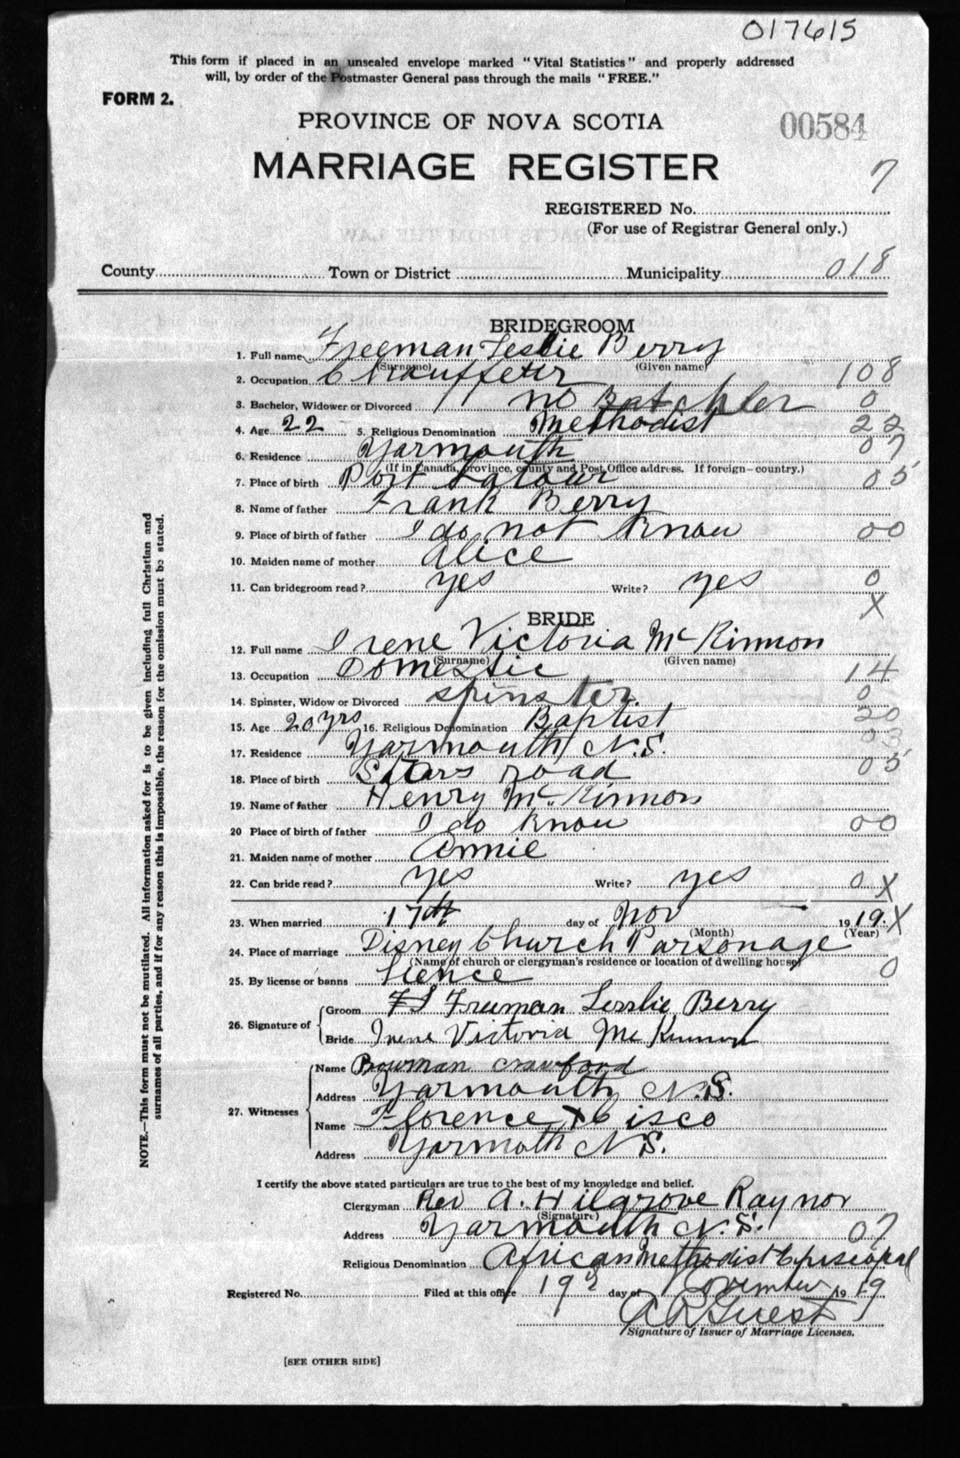 017615
This form if placed in an unsealed envelope marked "Vital Statistics" and properly addressed
will, by order of the Postmaster General pass through the mails "FREE."
FORM 2.
PROVINCE OF NOVA SCOTIA
00584
MARRIAGE REGISTER
7
REGISTERED No.
(For use of Registrar General only.)
County Town or District Municipality 018
BRIDEGROOM
1. Full name Freeman Leslie Berry
(Surname) (Given name)
2. Occupation Chauffeur 108
3. Bachelor, Widower or Divorced no Batchler 0
4. Age 22 5. Religious Denomination Methodist 22
6. Residence Yarmouth 07
(If in Canada, province, county and Post Office address. If foreign—country.)
7. Place of birth Port Latour 05
8. Name of father Frank Berry
9. Place of birth of father I do not know 00
10. Maiden name of mother Alice
11. Can bridegroom read? yes Write? yes 0
X
BRIDE
12. Full name Irene Victoria McKinnon
(Surname) (Given name)
13. Occupation Domestic 14
14. Spinster, Widow or Divorced spinster. 0
15. Age 20 yrs 16. Religious Denomination Baptist 20
17. Residence Yarmouth N.S. 03
18. Place of birth Stars road 05
19. Name of father Henry McKinnon
20 Place of birth of father I do know 00
21. Maiden name of mother Annie
22. Can bride read? yes Write? yes 0 X
23. When married 17th day of Nov 1919. X
(Month) (Year)
24. Place of marriage Disney Church Parsonage
(Name of church or clergyman's residence or location of dwelling house) 0
25. By license or banns lience
26. Signature of Groom Freeman Lesslie Berry
Bride Irene Victoria McKinnon
27. Witnesses Name Bowman crawford
Address Yarmouth N.S.
Name Florence X Cisco
Address Yarmoth N S.
I certify the above stated particulars are true to the best of my knowledge and belief.
Clergyman Rev A. Hilgrove Raynor
(Signature)
Address Yarmouth N.S. 07
Religious Denomination African Methodist Episcopal
Registered No. Filed at this office 19 day of November 1919
Signature of Issuer of Marriage Licenses.
[SEE OTHER SIDE]
NOTE.—This form must not be mutilated. All information asked for is to be given including full Christian and
surnames of all parties, and if for any reason this is impossible, the reason for the omission must be stated.